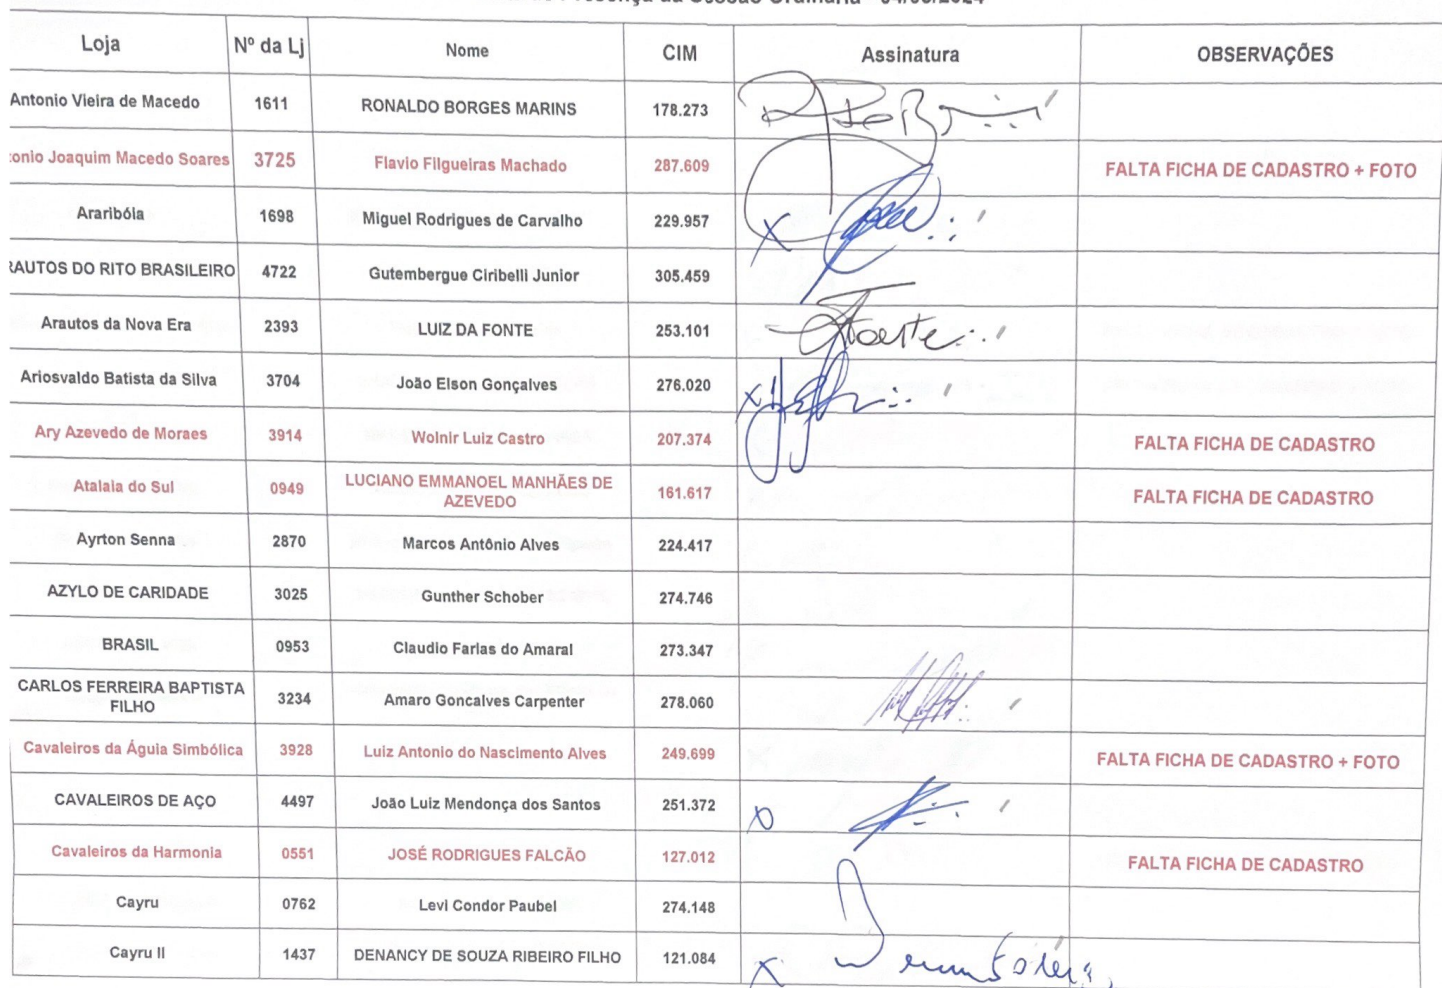 Presença da Sessão Ordinária - 04/05/2024
Loja Nº da Lj Nome CIM Assinatura OBSERVAÇÕES
Antonio Vieira de Macedo 1611 RONALDO BORGES MARINS 178.273
tonio Joaquim Macedo Soares 3725 Flavio Filgueiras Machado 287.609 FALTA FICHA DE CADASTRO + FOTO
Araribóia 1698 Miguel Rodrigues de Carvalho 229.957 X
RAUTOS DO RITO BRASILEIRO 4722 Gutembergue Ciribelli Junior 305.459
Arautos da Nova Era 2393 LUIZ DA FONTE 253.101
Ariosvaldo Batista da Silva 3704 João Elson Gonçalves 276.020 X
Ary Azevedo de Moraes 3914 Wolnir Luiz Castro 207.374 FALTA FICHA DE CADASTRO
Atalaia do Sul 0949 LUCIANO EMMANOEL MANHÃES DE 161.617 FALTA FICHA DE CADASTRO
AZEVEDO
Ayrton Senna 2870 Marcos Antônio Alves 224.417
AZYLO DE CARIDADE 3025 Gunther Schober 274.746
BRASIL 0953 Claudio Farias do Amaral 273.347
CARLOS FERREIRA BAPTISTA 3234 Amaro Goncalves Carpenter 278.060
FILHO
Cavaleiros da Águia Simbólica 3928 Luiz Antonio do Nascimento Alves 249.699 FALTA FICHA DE CADASTRO + FOTO
CAVALEIROS DE AÇO 4497 João Luiz Mendonça dos Santos 251.372 X
Cavaleiros da Harmonia 0551 JOSÉ RODRIGUES FALCÃO 127.012 FALTA FICHA DE CADASTRO
Cayru 0762 Levi Condor Paubel 274.148
Cayru II 1437 DENANCY DE SOUZA RIBEIRO FILHO 121.084 X